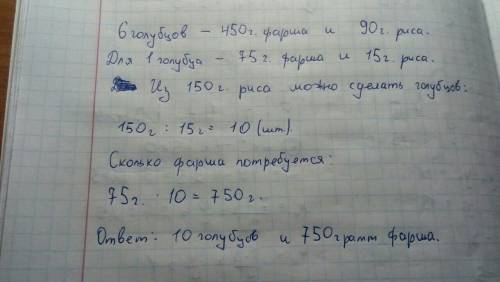 6 голубцов – 450г. фарша и 90г. риса.
Для 1 голубца – 75г. фарша и 15г. риса.
Из 150г. риса можно сделать голубцов:
150г : 15г = 10 (шт).
Сколько фарша потребуется:
75г. · 10 = 750г.
Ответ: 10 голубцов и 750грамм фарша.